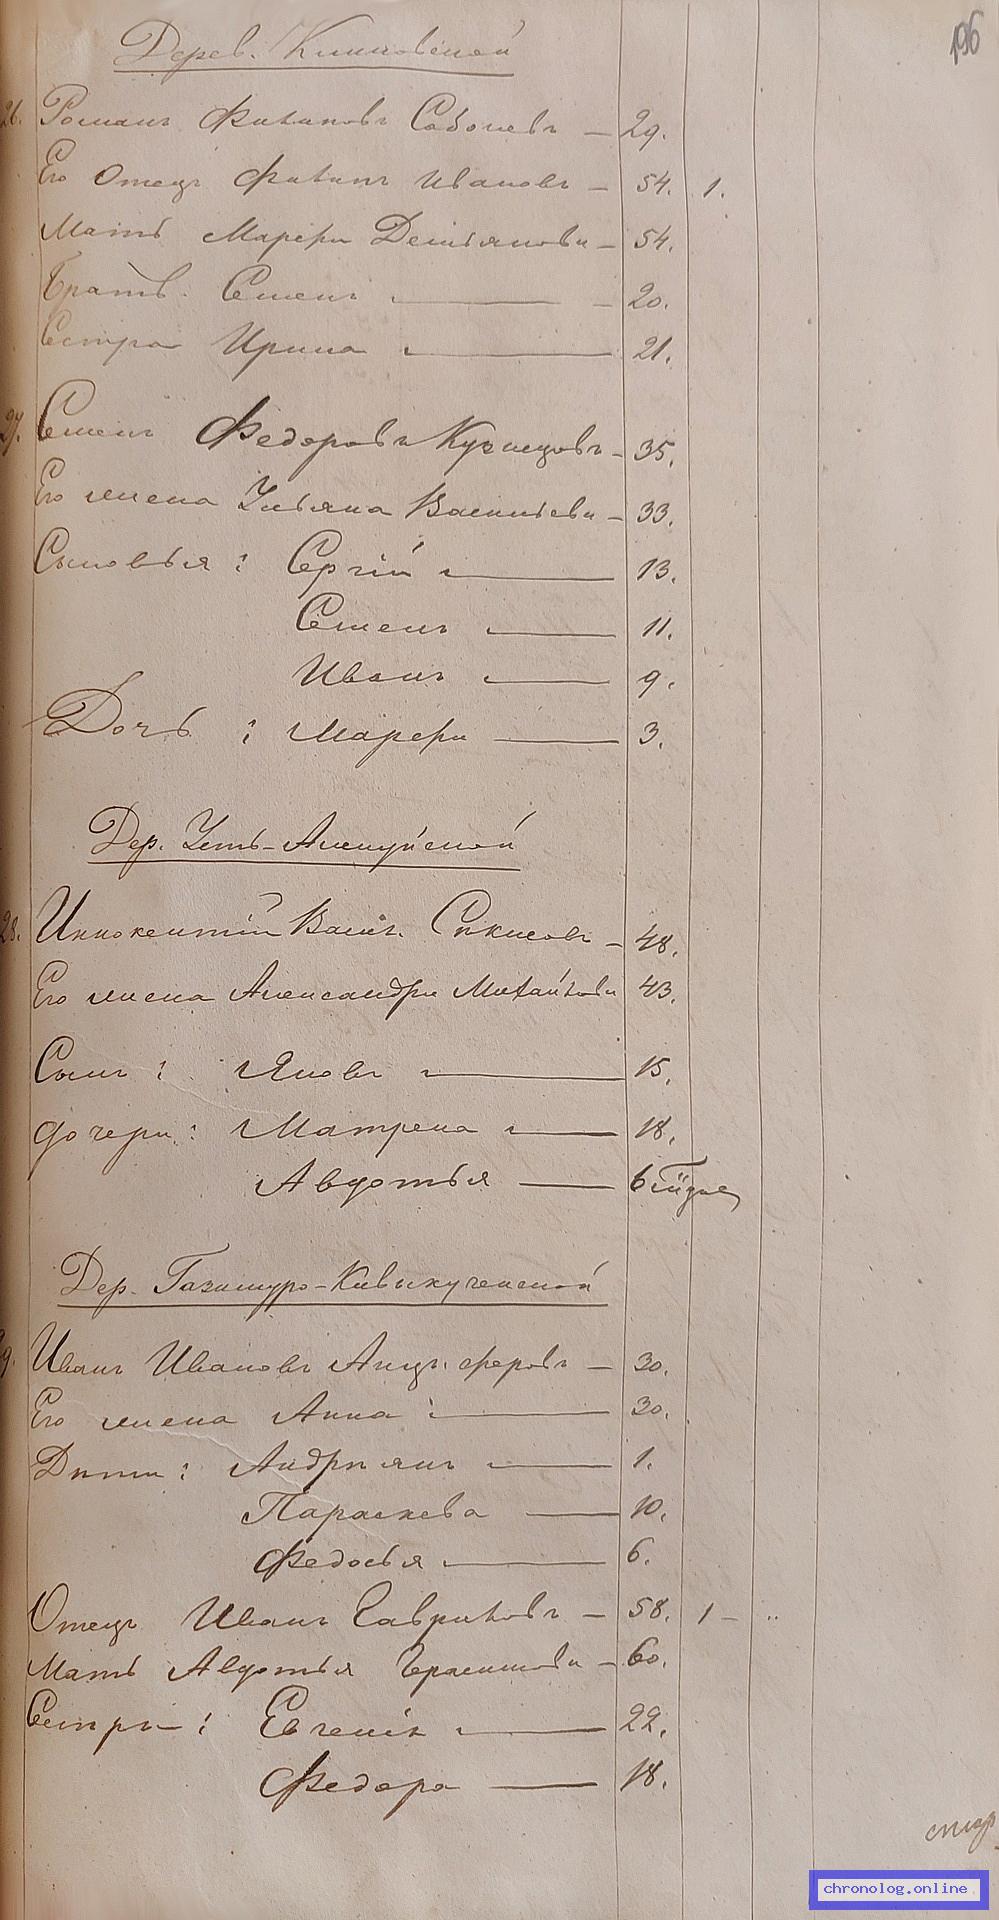 196
Дерев.
26. Романъ Филиповъ Соболевъ — 29.
Его Отецъ Филипъ Ивановъ — 54. 1.
Мать Марфа Демьянова — 54.
Братъ. Семенъ — 20.
Сестра Ирина — 21.
27. Семенъ Федоровъ Кузнецовъ — 35.
Его жена Ульяна Васильева — 33.
Сыновья: Сергій — 13.
Семенъ — 11.
Иванъ — 9.
Дочь: Марфа — 3.
Дер. Усть-
28. Иннокентій Васил. — 48.
Его жена Александра Михайлова 43.
Сынъ: Яковъ — 15.
дочери: Матрена — 18.
Авдотья — 6
Дер. Газимуро-Кавыкученской
29. Иванъ Ивановъ Анцыферовъ — 30.
Его жена Анна — 30.
Дѣти: Андріянъ — 1.
Параскева — 10.
Федосья — 6.
Отецъ Иванъ Гавриловъ — 58. 1 — "
Мать Авдотья Герасимова — 60.
Сестры: Евгенія — 22.
Федора — 18.
chronolog.online